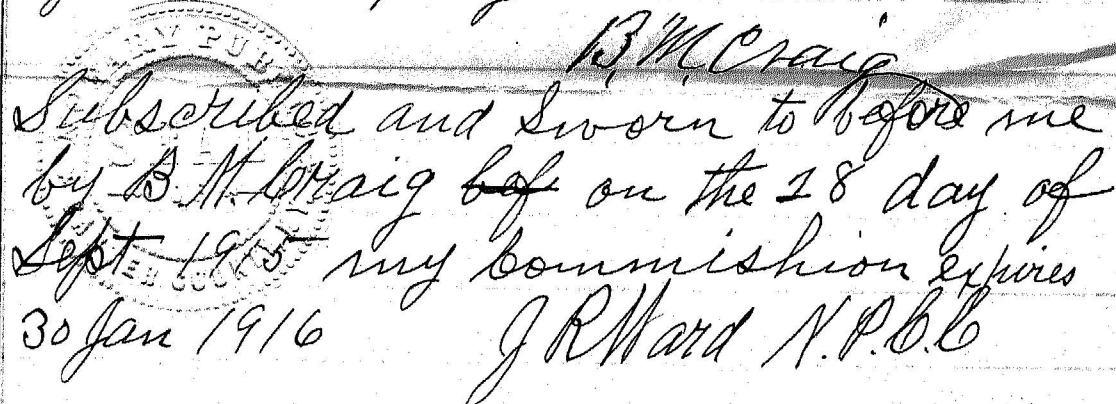 B. M. Craig
Subscribed and Sworn to before me
by B. M. Craig bef on the 28 day of
Sept 1915 my Commishion expires
30 Jan 1916 J R Ward N. P. C. C
NOTARY PUB